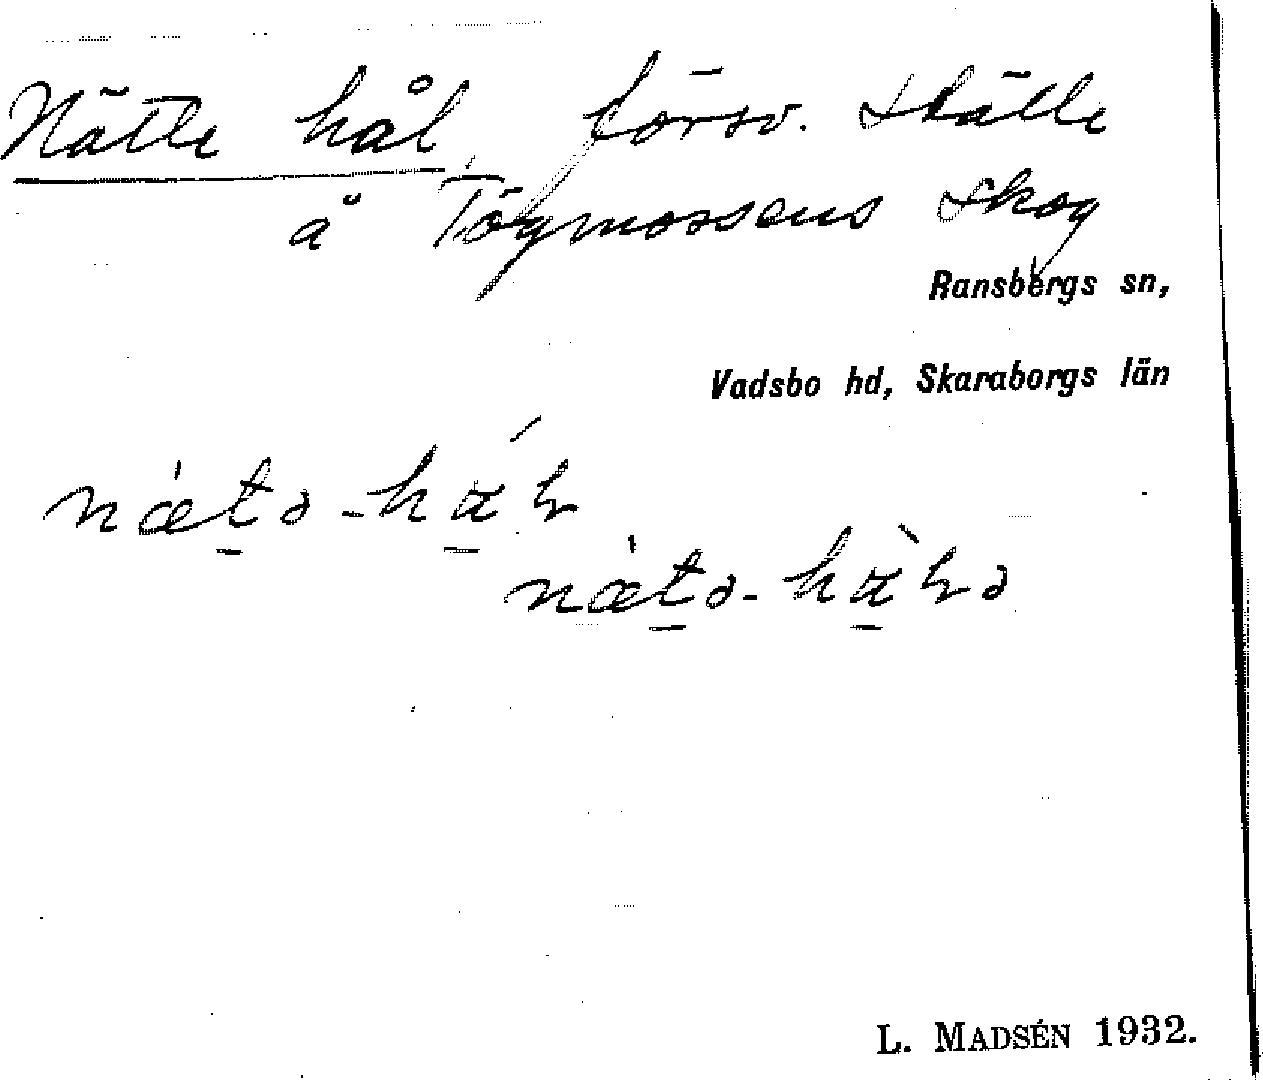 Nätte hål försv. ställe
å Tögmossens skog
Ransbergs sn,
Vadsbo hd, Skaraborgs län
L. MADSÉN 1932.